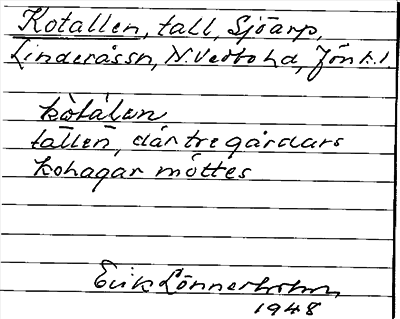 Kotallen, tall, Sjöarp,
Linderåssn, N. Vedbo hd, Jönk. l.
kòtálen
tallen, där tre gårdars
kohagar möttes
Erik Lönnerholm
1948